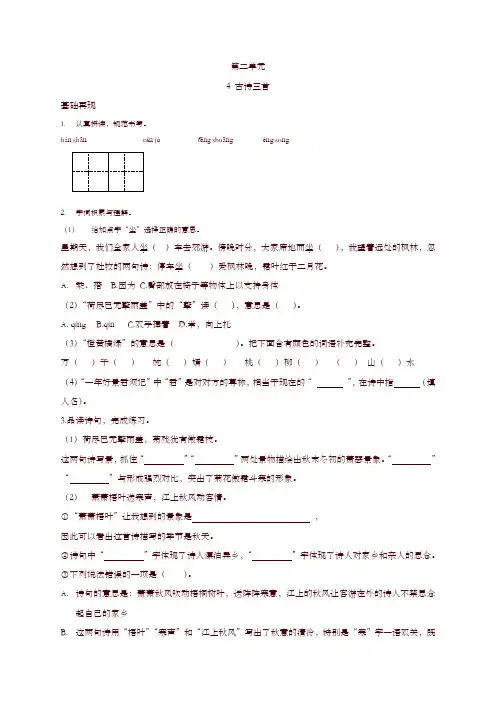 第二单元
4 古诗三首
基础再现
1. 认真拼读，规范书写。
hán shān cán jú fēng shuāng zèng sòng
2. 字词积累与理解。
（1） 给加点字“坐”选择正确的意思。
星期天，我们全家人坐（ ）车去郊游。傍晚时分，大家席地而坐（ ），我望着远处的枫林，忽
然想到了杜牧的两句诗：停车坐（ ）爱枫林晚，霜叶红于二月花。
A. 乘、搭 B.因为 C.臀部放在椅子等物体上以支持身体
（2）“荷尽已无擎雨盖”中的“擎”读（ ），意思是（ ）。
A. qíng B.qín C.双手捧着 D.举，向上托
（3）“橙黄橘绿”的意思是（ ）。把下面含有颜色的词语补充完整。
万（ ）千（ ） 姹（ ）嫣（ ） 桃（ ）柳（ ） （ ）山（ ）水
（4）“一年好景君须记”中“君”是对对方的尊称，相当于现在的“ ”，在诗中指 （填
人名）。
3.品读诗句，完成练习。
（1）荷尽已无擎雨盖，菊残犹有傲霜枝。
这两句诗写景，抓住“ ”“ ”两处景物描绘出秋末冬初的萧瑟景象。“ ”
“ ”与形成强烈对比，突出了菊花傲霜斗寒的形象。
（2） 萧萧梧叶送寒声，江上秋风动客情。
①“萧萧梧叶”让我想到的景象是 ，
因此可以看出这首诗描写的季节是秋天。
②诗句中“ ”字体现了诗人漂泊异乡，“ ”字体现了诗人对家乡和亲人的思念。
③下列说法错误的一项是（ ）。
A. 诗句的意思是：萧萧秋风吹动梧桐树叶，送阵阵寒意，江上的秋风让客游在外的诗人不禁思念
起自己的家乡
B. 这两句诗用“梧叶”“寒声”和“江上秋风”写出了秋意的清冷，特别是“寒”字一语双关，既